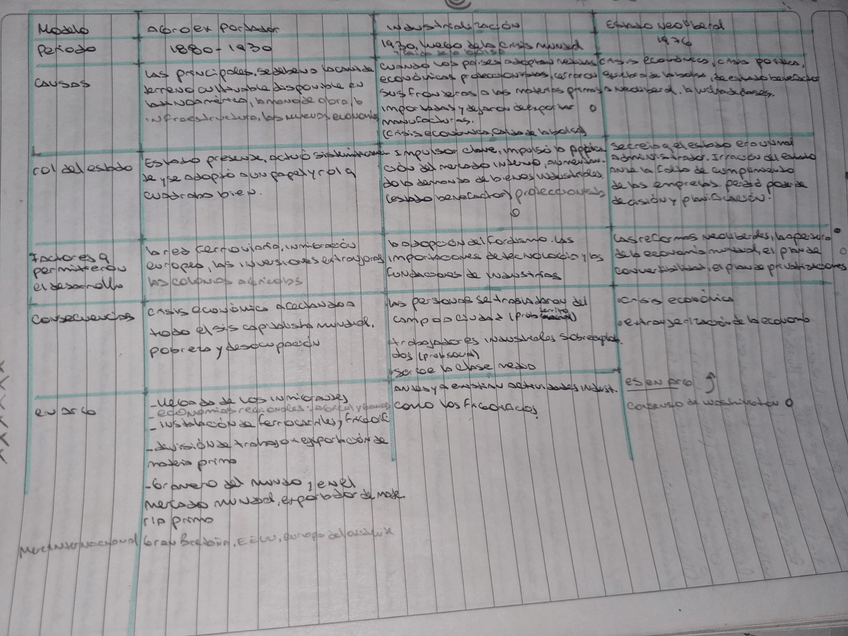 Modelo
Agroexportador
Industrialización
Estado Neoliberal
Periodo
1880-1930
1930, luego de la crisis mundial
1976
causas
Las principales, se debieron la cantidad de
terreno cultivable disponible en
latinoamérica, la mano de obra, la
infraestructura, los nuevos
cuando los países adoptan
económicas proteccionistas, cerraron
sus fronteras a las materias primas
importadas y dejaron de exportar
manufacturas.
(crisis económica, caída de la bolsa)
crisis económica, crisis política,
de estado benefactor
a neoliberal, la dictadura.
rol del estado
Estado presente, actuó
se y se adoptó a un papel y rol q
cuadraba bien.
Impulsor clave, impulsó la
ción del mercado interno, aumentan
do la demanda de bienes industriales
(estado benefactor) proteccionista
se creía q el estado era un mal
administrador. Ineficacia del estado
ante la falta de cumplimiento
de las empresas perdió poder de
decisión y planificación.
Factores q
permitieron
el desarrollo
la red ferroviaria, inmigración
europea, las inversiones extranjeras
las colonias agrícolas
la adopción del fordismo. Las
importaciones de tecnología y las
fundaciones de industrias
Las reformas neoliberales, la apertura
de la economía mundial, el plan de
convertibilidad, el plan de privatizaciones
consecuencias
crisis económica afectando a
todo el sis capitalista mundial.
pobreza y desocupación
las personas se trasladaron del
campo a ciudad
trabajadores industriales sobreexplota
dos
se crea la clase media
-crisis económica
-extranjerización de la economía
en arg
-llegada de los inmigrantes
-economías regionales:
-instalación de ferrocarriles,
-división de trabajo = exportación de
materia prima
-Granero del mundo, en el
mercado mundial, exportador de mate
ria prima
industr.
como los frigoríficos
consenso de washington
Merc internacional
Gran Bretaña, EEUU, europa